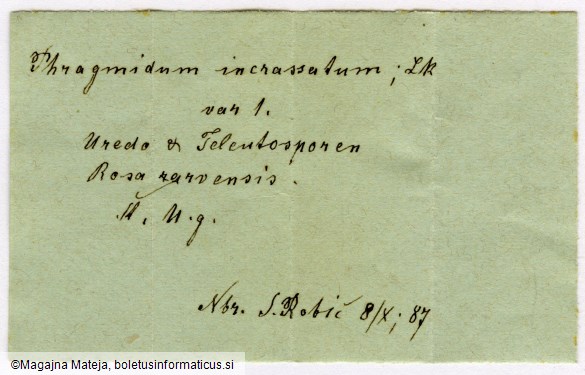 Phragmidum incrassatum; Lk
var 1.
Uredo & Teleutosporen
Rosa rarvensis.
U. g.
Nbr. S. Robič 8/X; 87
©Magajna Mateja, boletusinformaticus.si